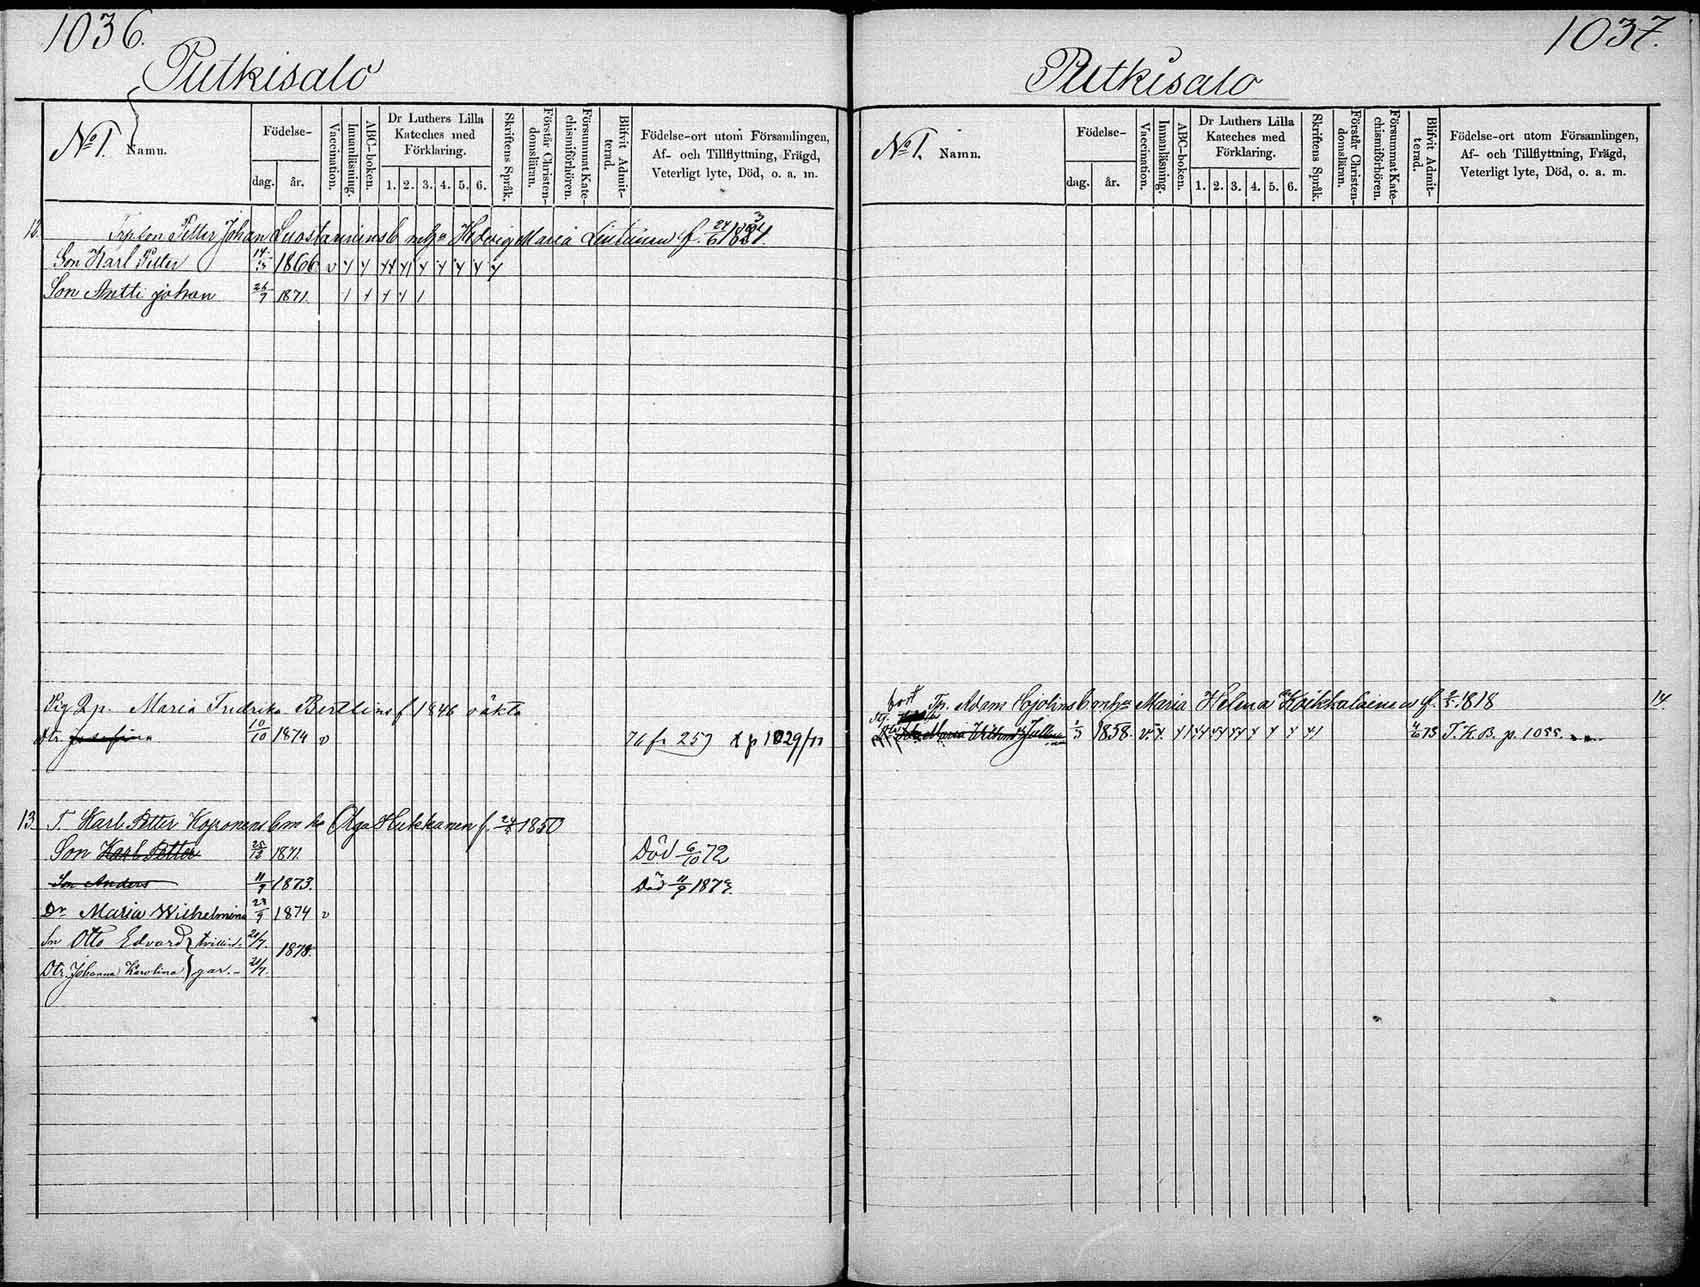 1036.
Putkisalo
No 1. Namn.
Födelse-
dag. år.
Vaccination.
Innanläsning.
ABC-boken.
Dr Luthers Lilla
Kateches med
Förklaring.
1. 2. 3. 4. 5. 6.
Skriftens Språk.
Förstår Christen-
domsläran.
Försummat Kate-
chismiförhören.
Blifvit Admit-
terad.
Födelse-ort utom Församlingen,
Af- och Tillflyttning, Frägd,
Veterligt lyte, Död, o. a. m.
12. Petter Johan m h:a Hedvig Maria f.
Son Karl Petter 1866 v
Son Antti Johan 26/7 1871.
Pig Maria Fredrika Bertlins f 1846 oäkta
Dtr. Josefina 10/10 1874 v 76 fr 257 p 1029
13. T. Karl Petter Koponens b m ha Olga Hukkanen f. 1850
Son Karl Petter 1871. Död 6/10 72
Son Anders 11/9 1873. Död 11/9 1873.
Dr Maria Wilhelmina 28/9 1874 v
Sn Otto Edvard tvillin- 20/7. 1878.
Dtr. Johanna Karolina gar. 21/7.
1037.
Putkisalo
No 1. Namn.
Födelse-
dag. år.
Vaccination.
Innanläsning.
ABC-boken.
Dr Luthers Lilla
Kateches med
Förklaring.
1. 2. 3. 4. 5. 6.
Skriftens Språk.
Förstår Christen-
domsläran.
Försummat Kate-
chismiförhören.
Blifvit Admit-
terad.
Födelse-ort utom Församlingen,
Af- och Tillflyttning, Frägd,
Veterligt lyte, Död, o. a. m.
bort Tp. Adam Maria Helena f. 1818 14.
Maria 1858. T. K. B. p.